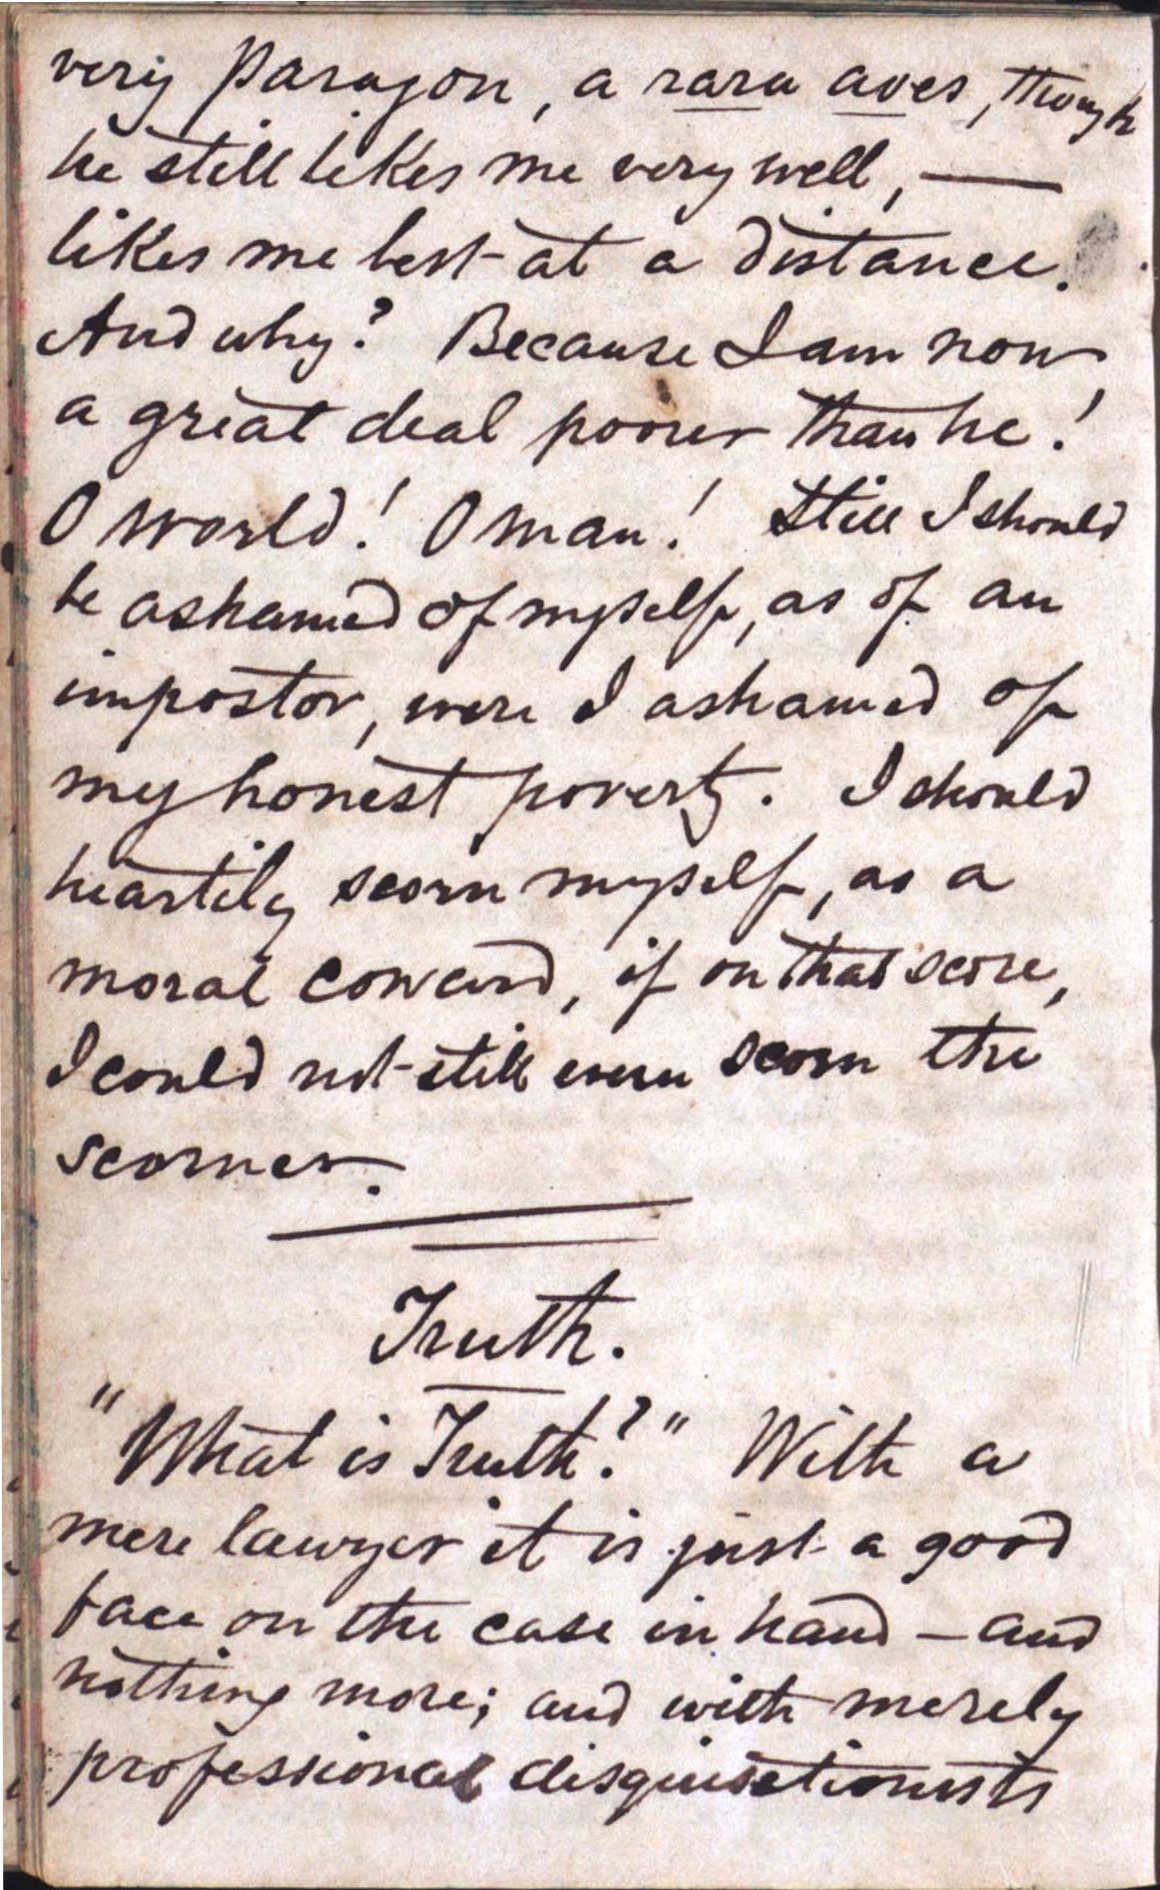 very paragon, a rara aves, though
he still likes me very well, —
likes me best at a distance.
And why? Because I am now
a great deal poorer than he!
O world! O man! Still I should
be ashamed of myself, as of an
impostor, were I ashamed of
my honest poverty. I should
heartily scorn myself, as a
moral coward, if on that score,
I could not still even scorn the
scorner.
Truth.
"What is Truth?" With a
mere lawyer it is just a good
face on the case in hand — and
nothing more; and with merely
professional disquisitionists